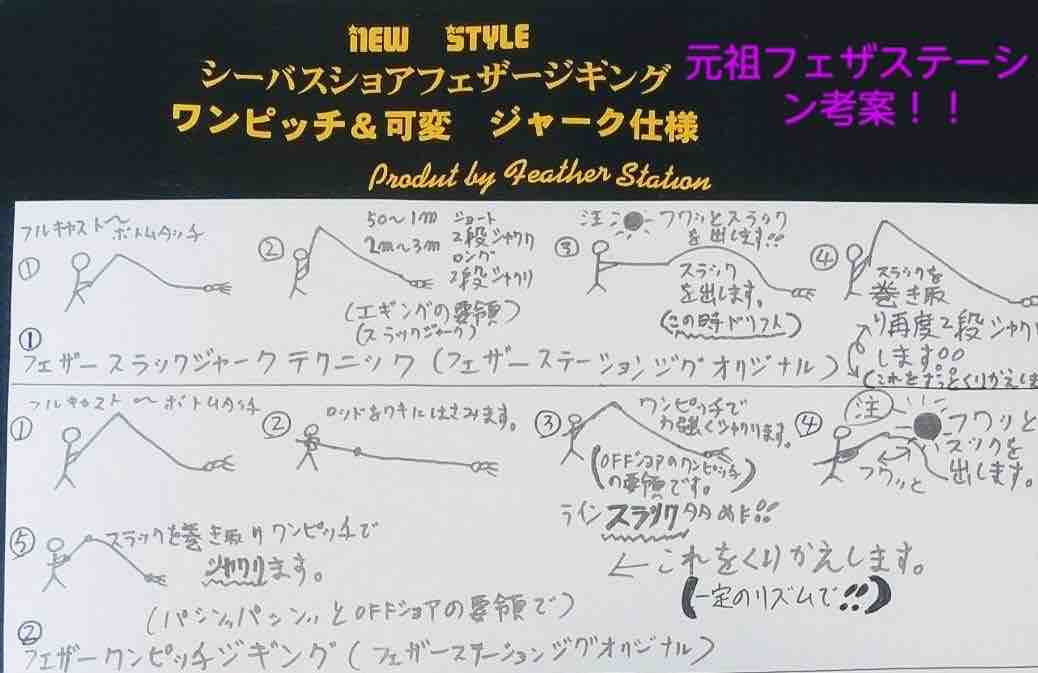 NEW STYLE
シーバスショアフェザージギング
ワンピッチ&可変 ジャーク仕様
元祖フェザステーシ
ン考案!!
Produt by Feather Station
フルキャスト〜
ボトムタッチ
①
②
50〜1m ショート
2段シャクリ
2m〜3m ロング
2段シャクリ
(エギングの要領)
(スラックジャーク)
③
注 フワッとスラック
を出します!!
スラック
を出します。
(この時ドリフト)
④
スラックを
巻き取
り再度2段シャクリ
します。。
(これをずっとくりかえしま
①
フェザースラックジャークテクニック(フェザーステーションジグオリジナル)
フルキャスト〜ボトムタッチ
①
②
ロッドをワキにはさみます。
③
ワンピッチで
力強くシャクリます。
(OFFショアのワンピッチ
の要領です。)
ラインスラック
④
注
フワッと
スックを
出します。
フワッと
⑤
スラックを巻き取りワンピッチで
シャクリます。
←これをくりかえします。
(一定のリズムで!!)
(パシンッパシンッとOFFショアの要領で)
②
フェザーワンピッチジギング(フェザーステーションジグオリジナル)